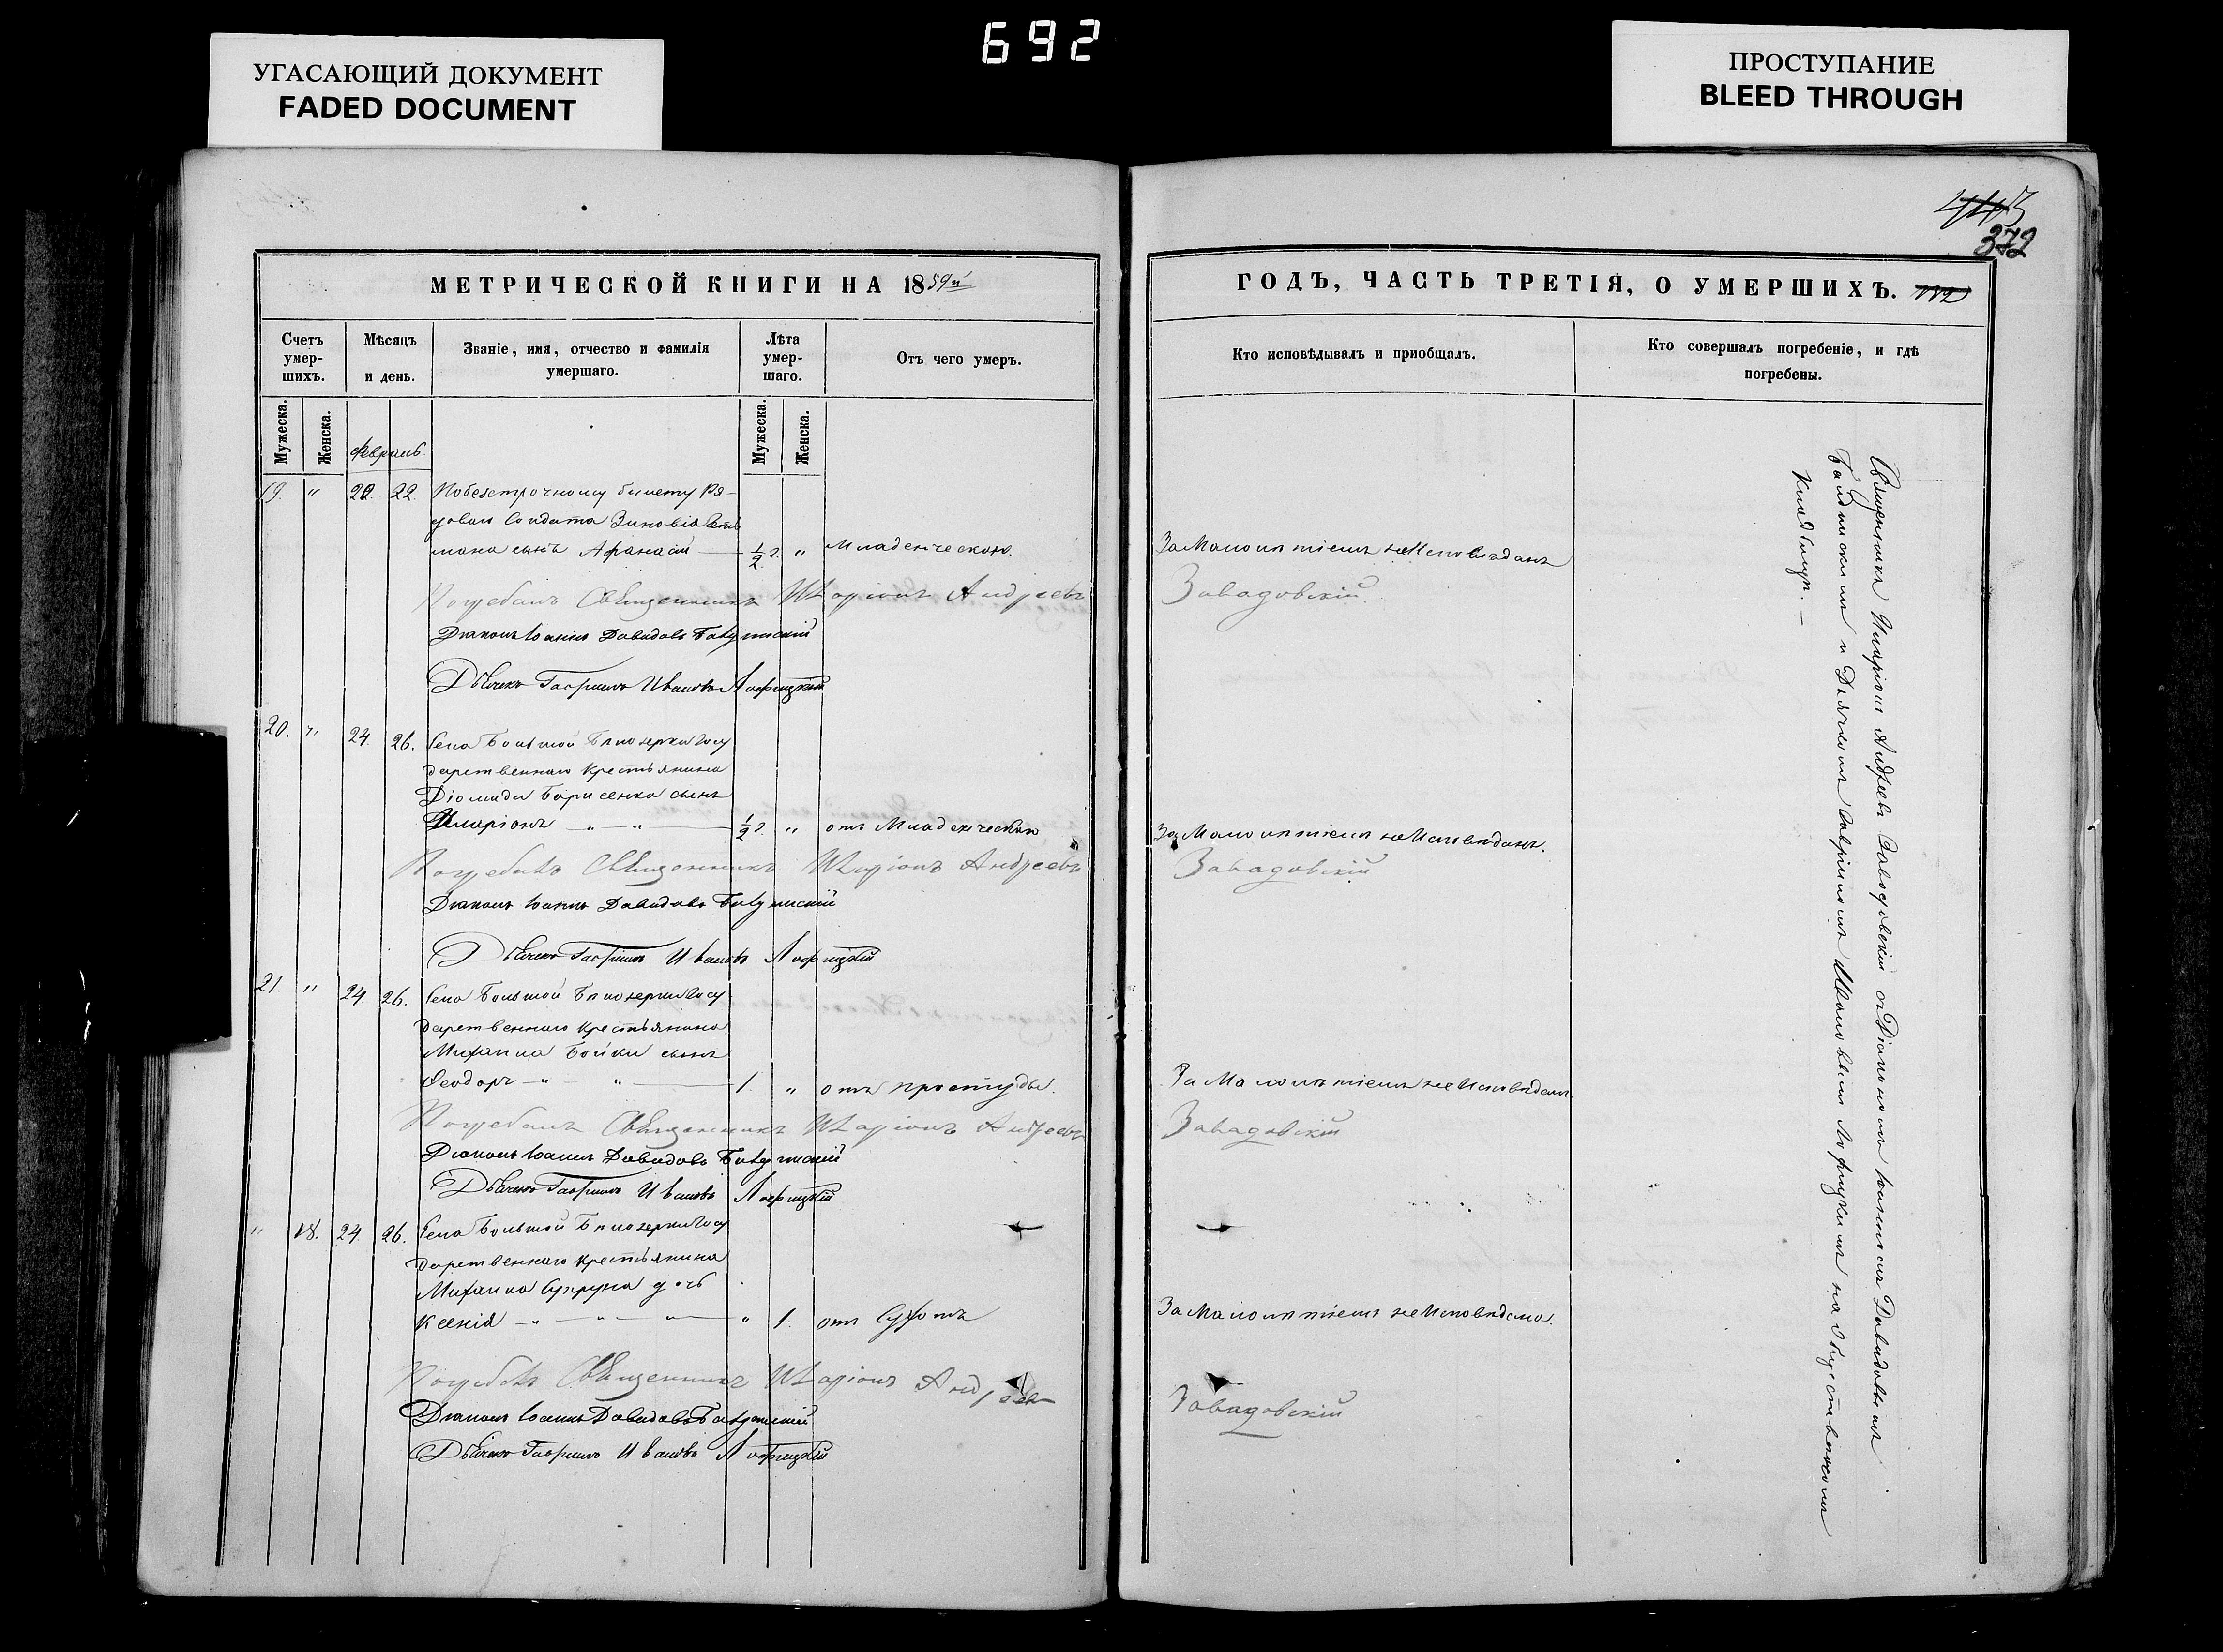 692
УГАСАЮЩИЙ ДОКУМЕНТ
FADED DOCUMENT
ПРОСТУПАНИЕ
BLEED THROUGH
372
МЕТРИЧЕСКОЙ КНИГИ НА 1859й
Счетъ умер-шихъ.
Мѣсяцъ и день.
Званіе, имя, отчество и фамилія умершаго.
Лѣта умер-шаго.
Отъ чего умеръ.
Мужеска.
Женска.
Февраль.
Мужеска.
Женска.
19. " 22. 22. По безсрочному билету Ря-
доваго Солдата Зиновія
сынъ Афанасій — 1/2 г. " Младенческою.
Погребалъ Священникъ Иларіонъ Андреевъ
Діаконъ Іоаннъ Давидовъ
Дьячекъ Гавріилъ Ивановъ
20. " 24. 26. Села Большой Бѣлозерки Госу
дарственнаго Крестьянина
Діомида Борисенка сынъ
Иларіонъ — " — " — 1/2 г. " отъ Младенческой
Погребалъ Священникъ Иларіонъ Андреевъ
Діаконъ Іоаннъ Давидовъ
Дьячекъ Гавріилъ Ивановъ
21. " 24. 26. Села Большой Бѣлозерки Госу
дарственнаго Крестьянина
Михаила Бойки сынъ
Феодоръ — " — " — 1. " отъ простуды.
Погребалъ Священникъ Иларіонъ Андреевъ
Діаконъ Іоаннъ Давидовъ
Дьячекъ Гавріилъ Ивановъ
" 18. 24. 26. Села Большой Бѣлозерки Госу
дарственнаго Крестьянина
Михаила дочь
Ксенія — " — " — " — " 1. отъ Сухотъ
Погребалъ Священникъ Иларіонъ Андреевъ
Діаконъ Іоаннъ Давидовъ
Дьячекъ Гавріилъ Ивановъ
ГОДЪ, ЧАСТЬ ТРЕТІЯ, О УМЕРШИХЪ.
Кто исповѣдывалъ и приобщалъ.
Кто совершалъ погребеніе, и гдѣ погребены.
За Малолѣтіемъ не Исповѣданъ
Завадовскій
За Малолѣтіемъ не Исповѣданъ.
Завадовскій
За Малолѣтіемъ не Исповѣданъ
Завадовскій
За Малолѣтіемъ не Исповѣдана.
Завадовскій
Священникъ Иларіонъ Андреевъ Завадовскій съ Діакономъ Іоанномъ Давидовымъ
и Дьячкомъ Гавріиломъ Ивановымъ на Общественномъ
Кладбищѣ. —